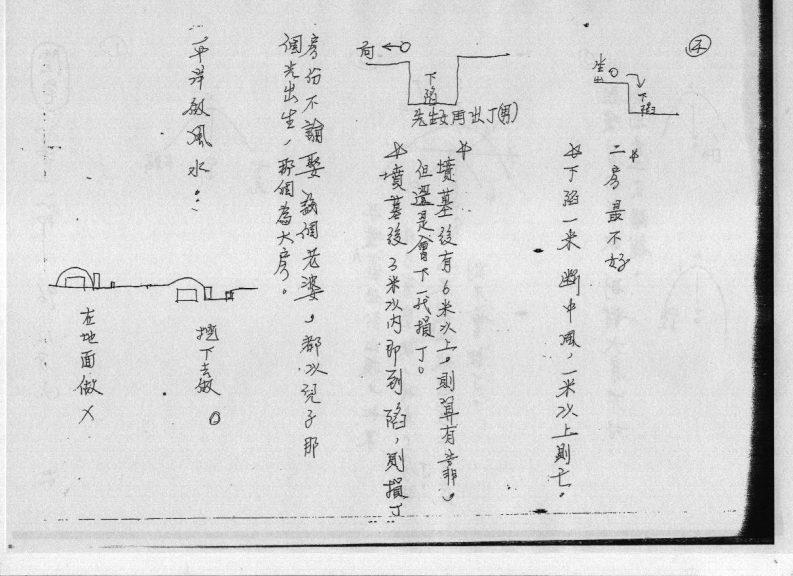 坐
下陷
二房最不好
下陷一米斷中風,一米以上則亡。
向
下陷
先出女再出丁(男)
墳墓後有6米以上,則算有靠。
但還是會下一代損丁。
墳墓後3米以內即到陷,則損丁
房份不論娶幾個老婆,都以兒子那
個先出生,那個為大房。
一平洋做風水:
挖下去做 O
在地面做 X